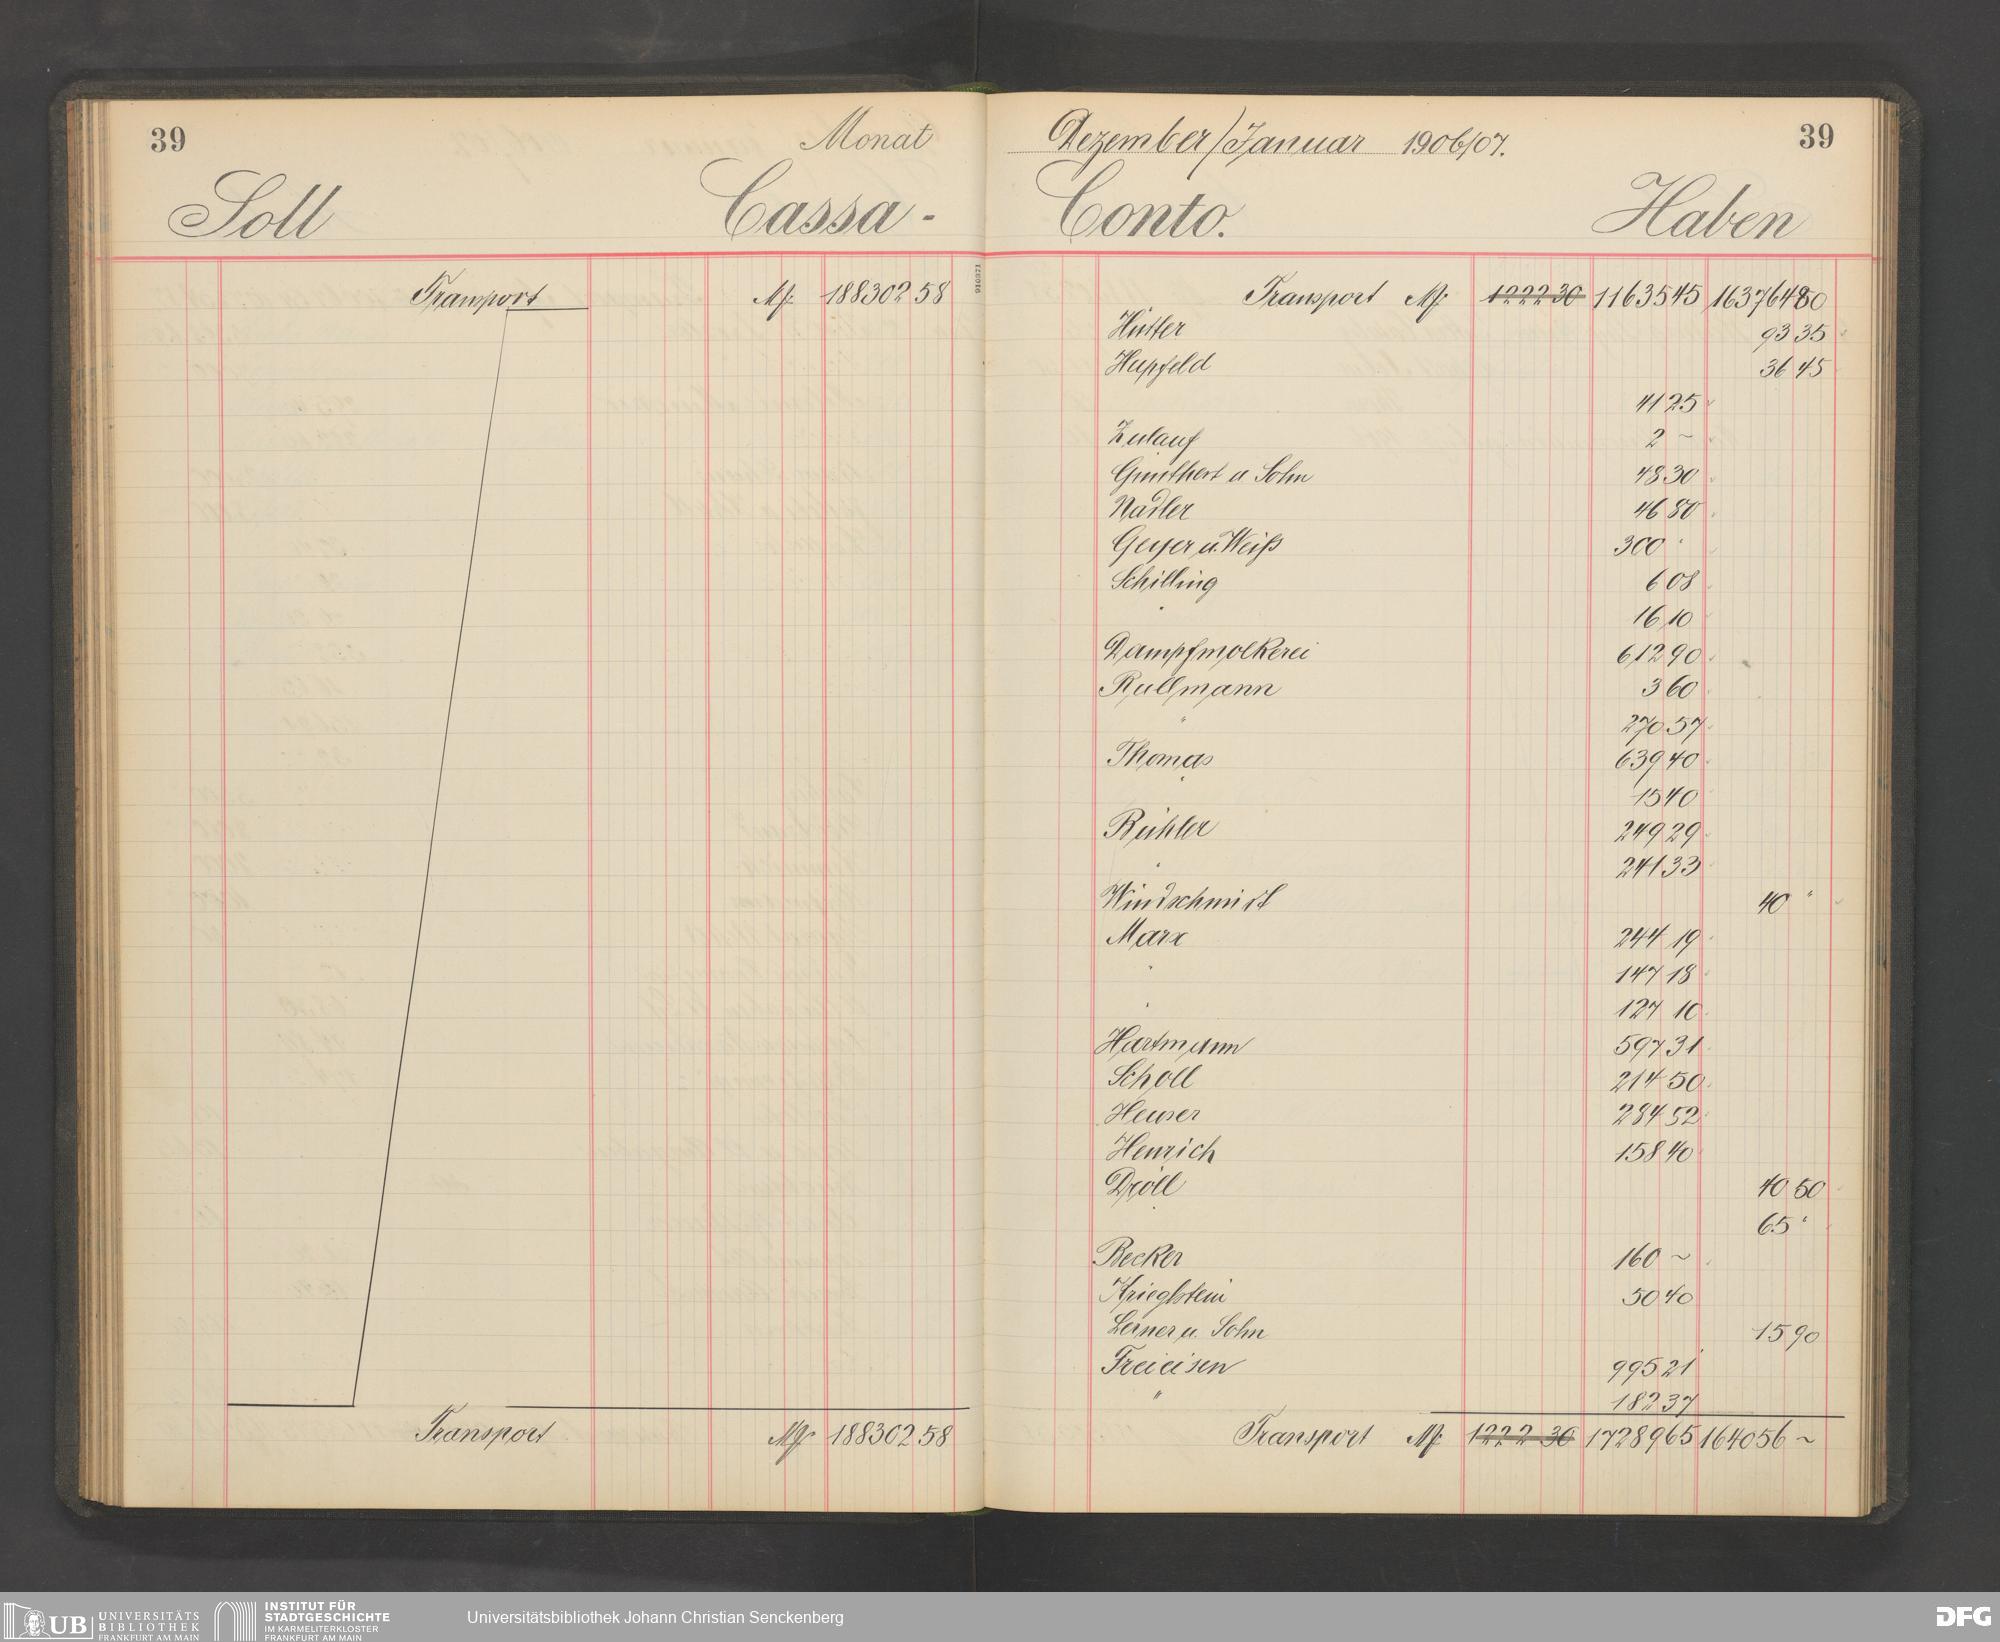 39
Monat
Soll Cassa-
Transport M. 188302 58
Transport M. 188302 58
Dezember/Januar 1906/07.
39
Conto. Haben
Transport M. 1222 30 11635 45 163764 80
Hütter 93 35
Hupfeld 36 45
41 25
Zulauf 2 ~
Günthert u Sohn 48 30
Nadler 46 80
Geyer u. Weiß 300 "
Schilling 6 08
" 16 10
Dampfmolkerei 612 90
Rullmann 3 60
" 270 57
Thomas 639 40
" 15 40
Rühler 249 29
" 241 33
Windschmidt 40 "
Marx 244 19
" 147 18
" 127 10
Hartmann 597 31
Scholl 214 50
Heuser 284 52
Henrich 158 40
Dröll 40 50
" 65 "
Becker 160 ~
Krieglstein 50 40
Lerner u. Sohn 15 90
Freieisen 995 21
" 182 37
Transport M. 1222 30 17289 65 164056 ~
910371
UB UNIVERSITÄTS
BIBLIOTHEK
FRANKFURT AM MAIN
INSTITUT FÜR
STADTGESCHICHTE
IM KARMELITERKLOSTER
FRANKFURT AM MAIN
Universitätsbibliothek Johann Christian Senckenberg
DFG